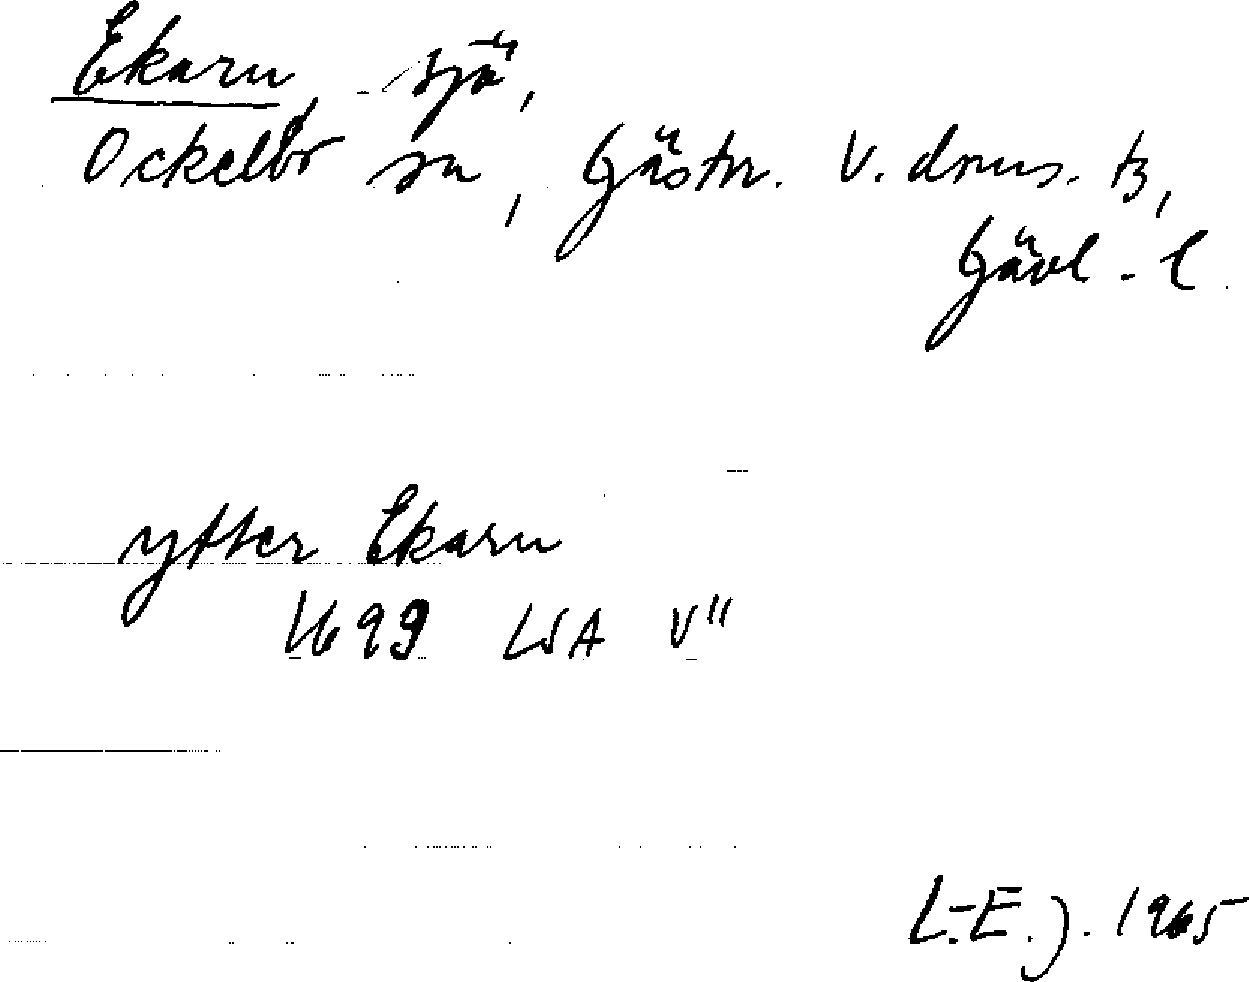 Ekaru sjö,
Ockelbo sn, Gästr. V. dms. tg,
Gävl. l.
ytter Ekaru
1699 LSA V"
L-E.J. 1965